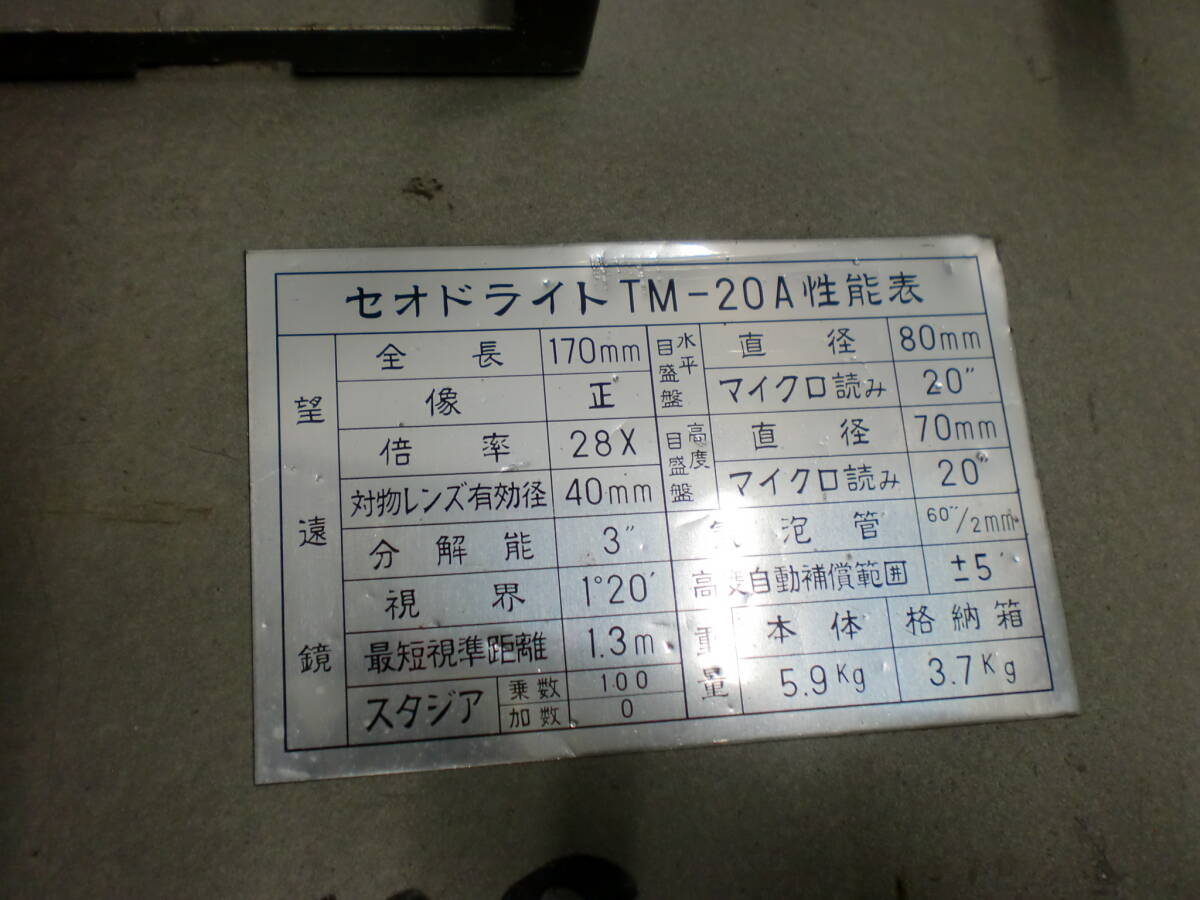 セオドライトTM-20A性能表
望遠鏡
全長 170mm
像 正
倍率 28X
対物レンズ有効径 40mm
分解能 3″
視界 1°20′
最短視準距離 1.3m
スタジア 乗数 100
加数 0
水平目盛盤 直径 80mm
マイクロ読み 20″
高度目盛盤 直径 70mm
マイクロ読み 20″
気泡管 60″/2mm
高度自動補償範囲 ±5′
重量 本体 格納箱
5.9Kg 3.7Kg